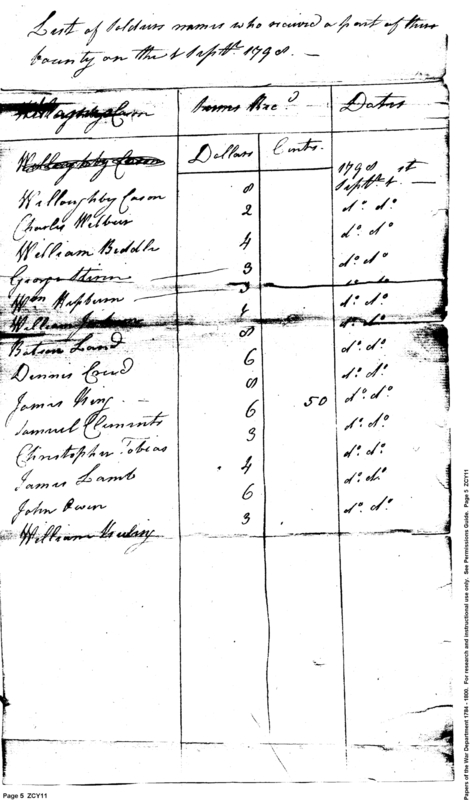 List of Soldiers names who received a part of their
bounty on the 1 Septbr. 1798. —
Sums Recd. Dates
Dollars Cents.
1798 st
Willoughby Cason 8 Septbr. 1. —
Charles Wilbur 2 do. do.
William Biddle 4 do. do.
George 3 do. do.
Wm. Hepburn 3
William 1 do. do.
Batson Land 8 do. do.
Dennis 6 do. do.
James King 8 do. do.
Samuel Clements 6 50 do. do.
Christopher Tobias 3 do. do.
James Lamb 4 do. do.
John Owen 6 do. do.
William 3 do. do.
Page 5 ZCY11
Papers of the War Department 1784 - 1800. For research and instructional use only. See Permissions Guide. Page 5 ZCY11